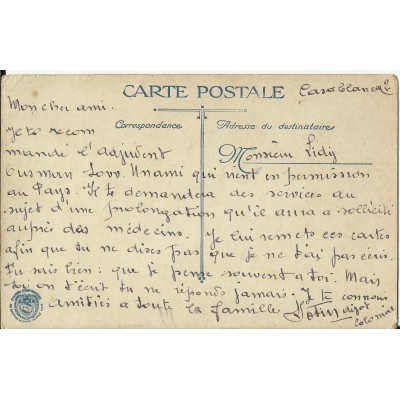 CARTE POSTALE
Casablanca
Mon cher ami.
Correspondance
Adresse du destinataire
Je te recom
mandé l'adjudent
Monsieur
Ousman Sow. Unami qui vient en permission
au Pays. Il te demandera des services au
sujet d'une prolongation qu'il aura a sollicité
auprès des médecins. Je lui remets ces cartes
afin que tu ne dises pas que je ne t'ai pas écris.
Tu sais bien : que je pense souvent a toi. Mais
toi on t'écrit tu ne réponds jamais. Je te connais
Amitiés a toute la famille
dépot
colonial